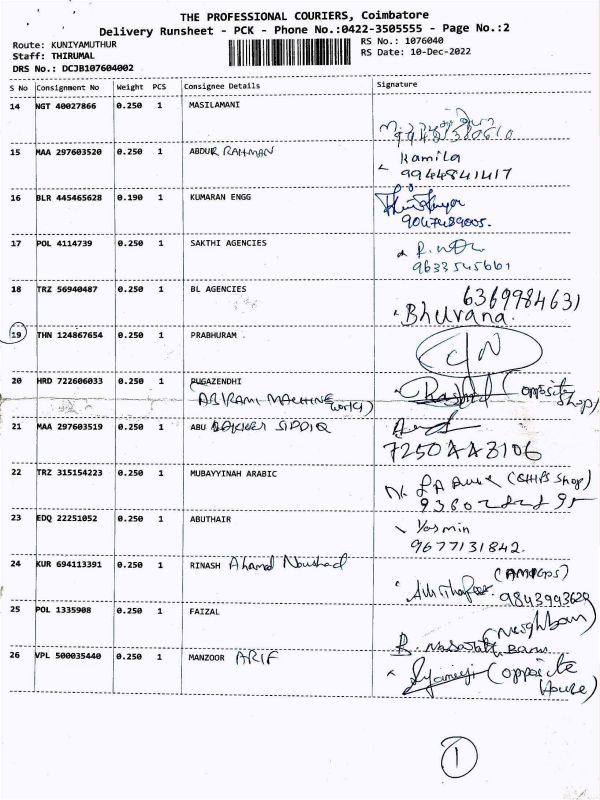 THE PROFESSIONAL COURIERS, Coimbatore
Delivery Runsheet - PCK - Phone No.:0422-3505555 - Page No.:2
Route: KUNIYAMUTHUR
RS No.: 1076040
Staff: THIRUMAL
RS Date: 10-Dec-2022
DRS No.: DCJB107604002
S No Consignment No Weight PCS Consignee Details Signature
14 NGT 40027866 0.250 1 MASILAMANI
15 MAA 297603520 0.250 1 ABDUR RAHMAN Kamila
9944841417
16 BLR 445465628 0.190 1 KUMARAN ENGG
9047489005.
17 POL 4114739 0.250 1 SAKTHI AGENCIES
9633545661
18 TRZ 56940487 0.250 1 BL AGENCIES 6369984631
Bhuvana.
19 THN 124867654 0.250 1 PRABHURAM C/N
20 HRD 722606033 0.250 1 PUGAZENDHI Rashid (opposite
ABIRAMI MACHINE works) Shop)
21 MAA 297603519 0.250 1 ABU BAKKER SIDDIQ
22 TRZ 315154223 0.250 1 MUBAYYINAH ARABIC (CHIPS Shop)
23 EDQ 22251052 0.250 1 ABUTHAIR Yasmin
9677131842.
24 KUR 694113391 0.250 1 RINASH Ahamed Noushad
9843943620
25 POL 1335908 0.250 1 FAIZAL (Neighbour)
26 VPL 500035440 0.250 1 MANZOOR ARIF (opposite
House)
1